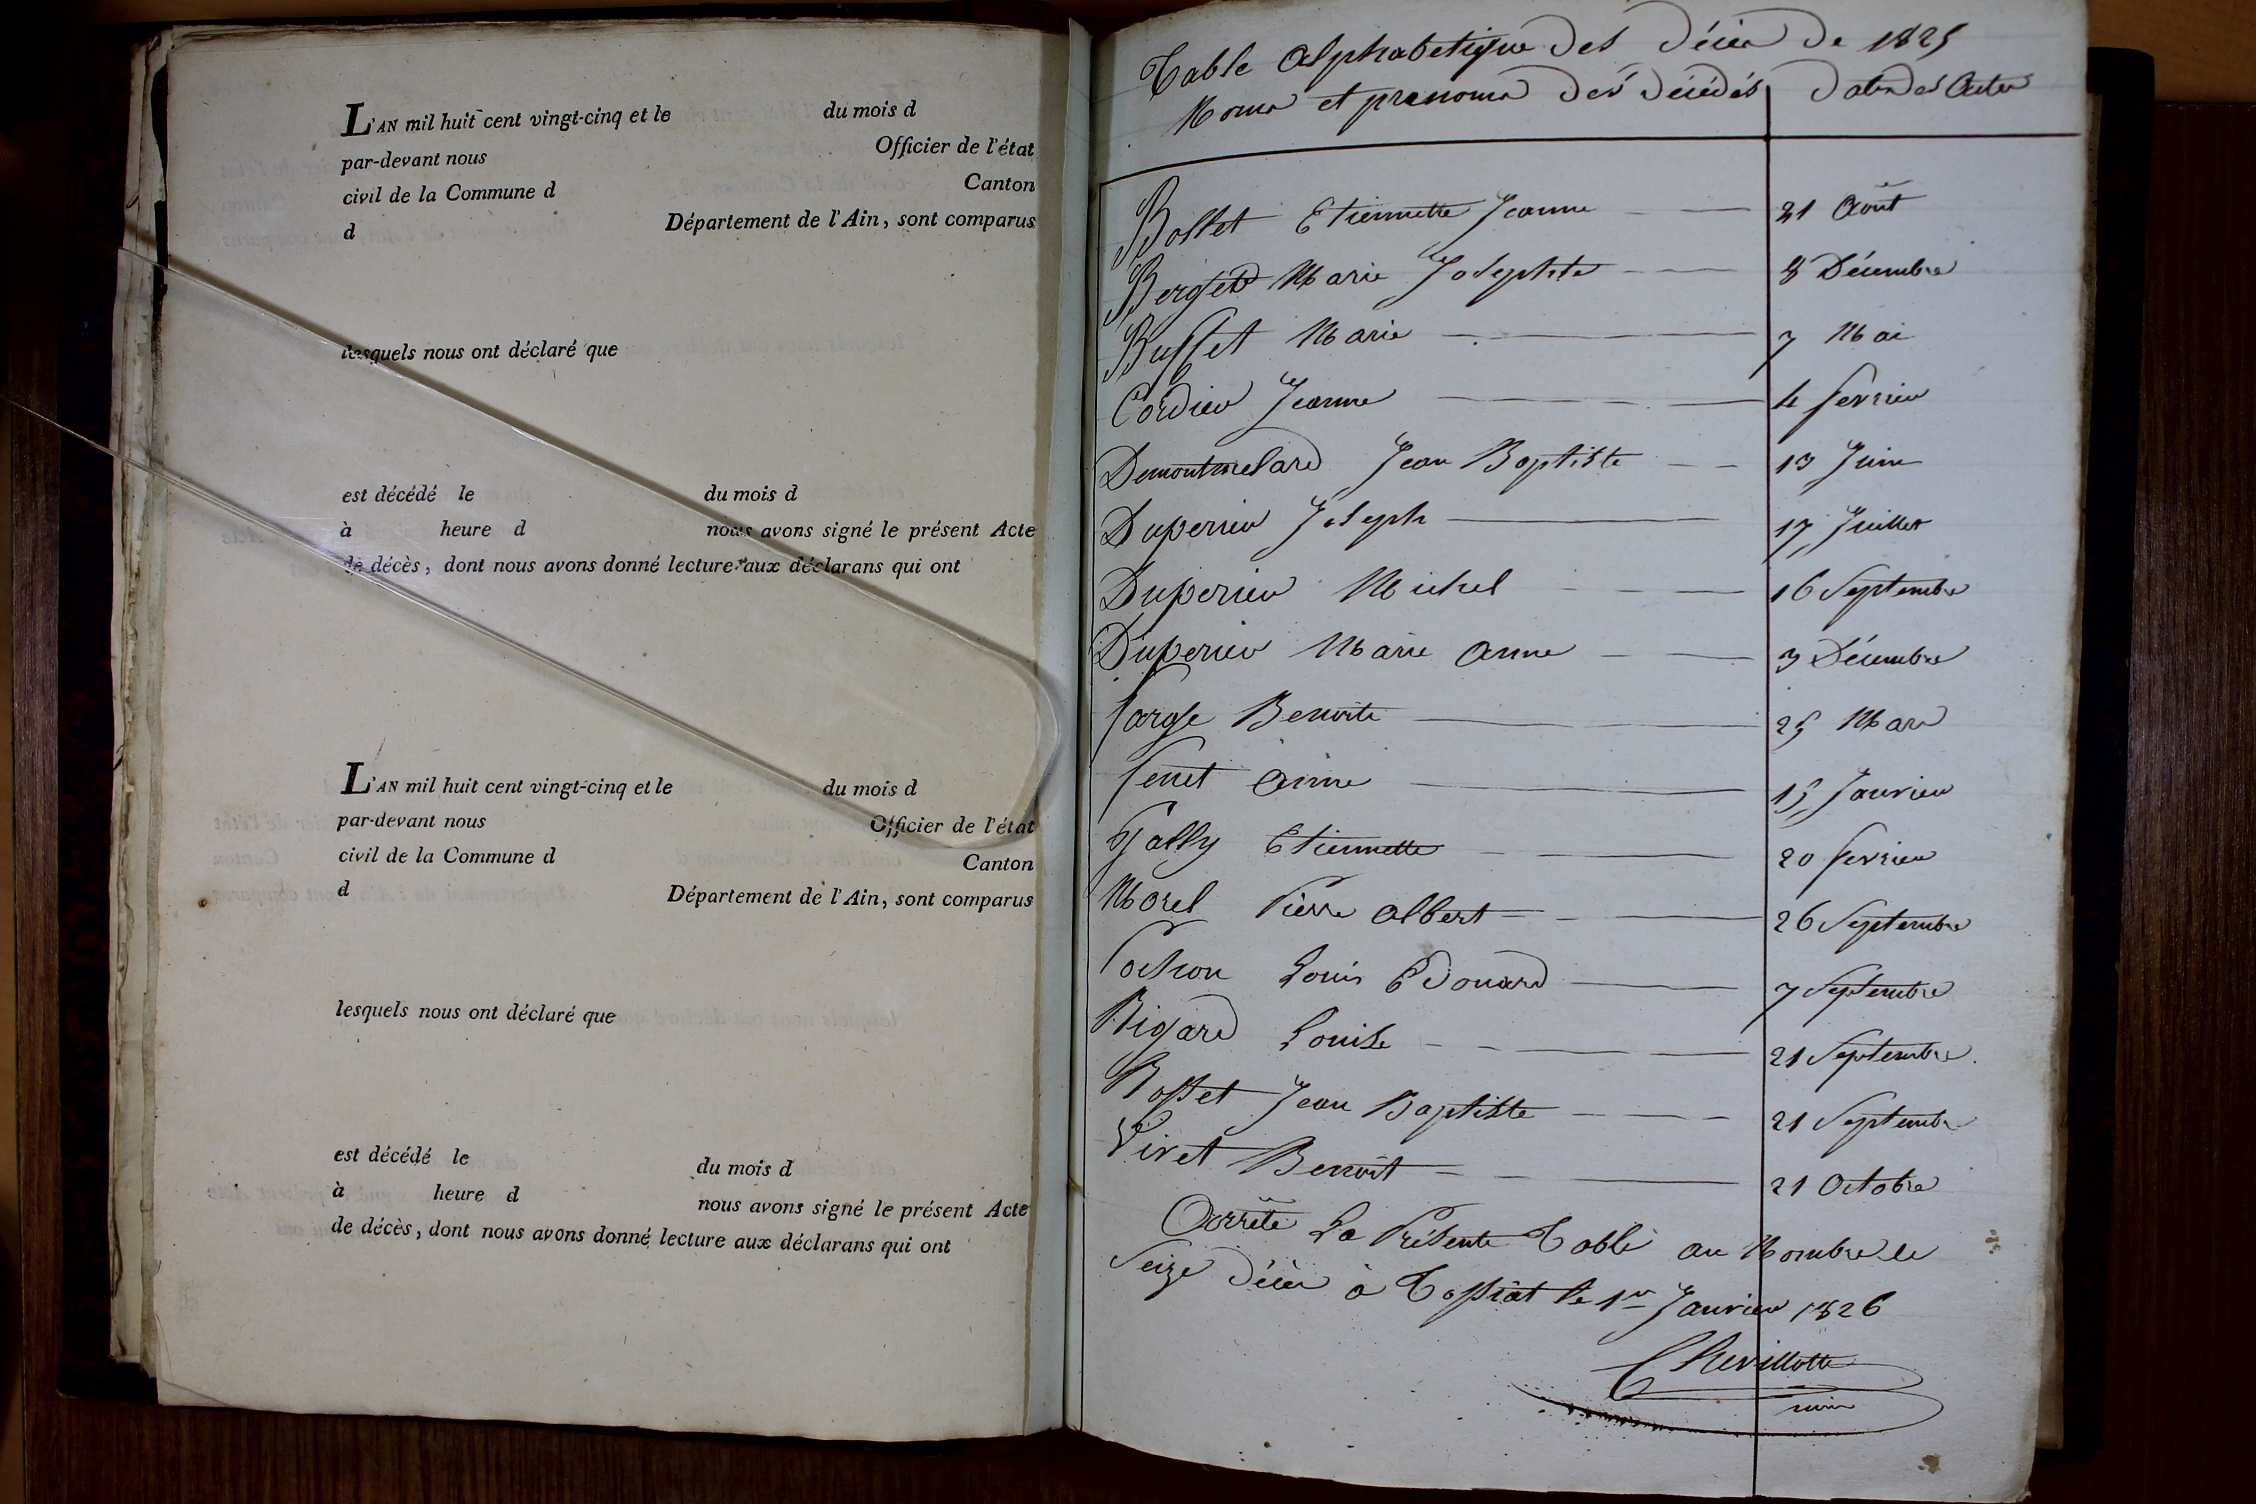 L'AN mil huit cent vingt-cinq et le du mois d
par-devant nous Officier de l'état
civil de la Commune d Canton
d Département de l'Ain, sont comparus
lesquels nous ont déclaré que
est décédé le du mois d
à heure d nous avons signé le présent Acte
de décès, dont nous avons donné lecture aux déclarans qui ont
L'AN mil huit cent vingt-cinq et le du mois d
par-devant nous Officier de l'état
civil de la Commune d Canton
d Département de l'Ain, sont comparus
lesquels nous ont déclaré que
est décédé le du mois d
à heure d nous avons signé le présent Acte
de décès, dont nous avons donné lecture aux déclarans qui ont
Table Alphabetique des décès de 1825
Noms et prenoms des décédés Dates des Actes
Bollet Etiennette Jeanne 21 Août
Berger Marie Josephte 8 Décembre
Buffet Marie 7 Mai
Cordier Jeanne 4 fevrier
Demontmelard Jean Baptiste 13 Juin
Duperrier Joseph 17 Juillet
Duperrier Michel 16 Septembre
Duperrier Marie Anne 3 Décembre
farge Benoite 25 Mars
fenet Anne 15 Janvier
Gally Etiennette 20 fevrier
Morel Pierre Albert 26 Septembre
Pochon Louis Edouard 7 Septembre
Rigard Louise 21 Septembre
Rosset Jean Baptiste 21 Septembre
Viret Benoit 21 Octobre
Arrêté La Présente Table au Nombre de
Seize décès à Tossiat le 1er Janvier 1826
Chevillotte